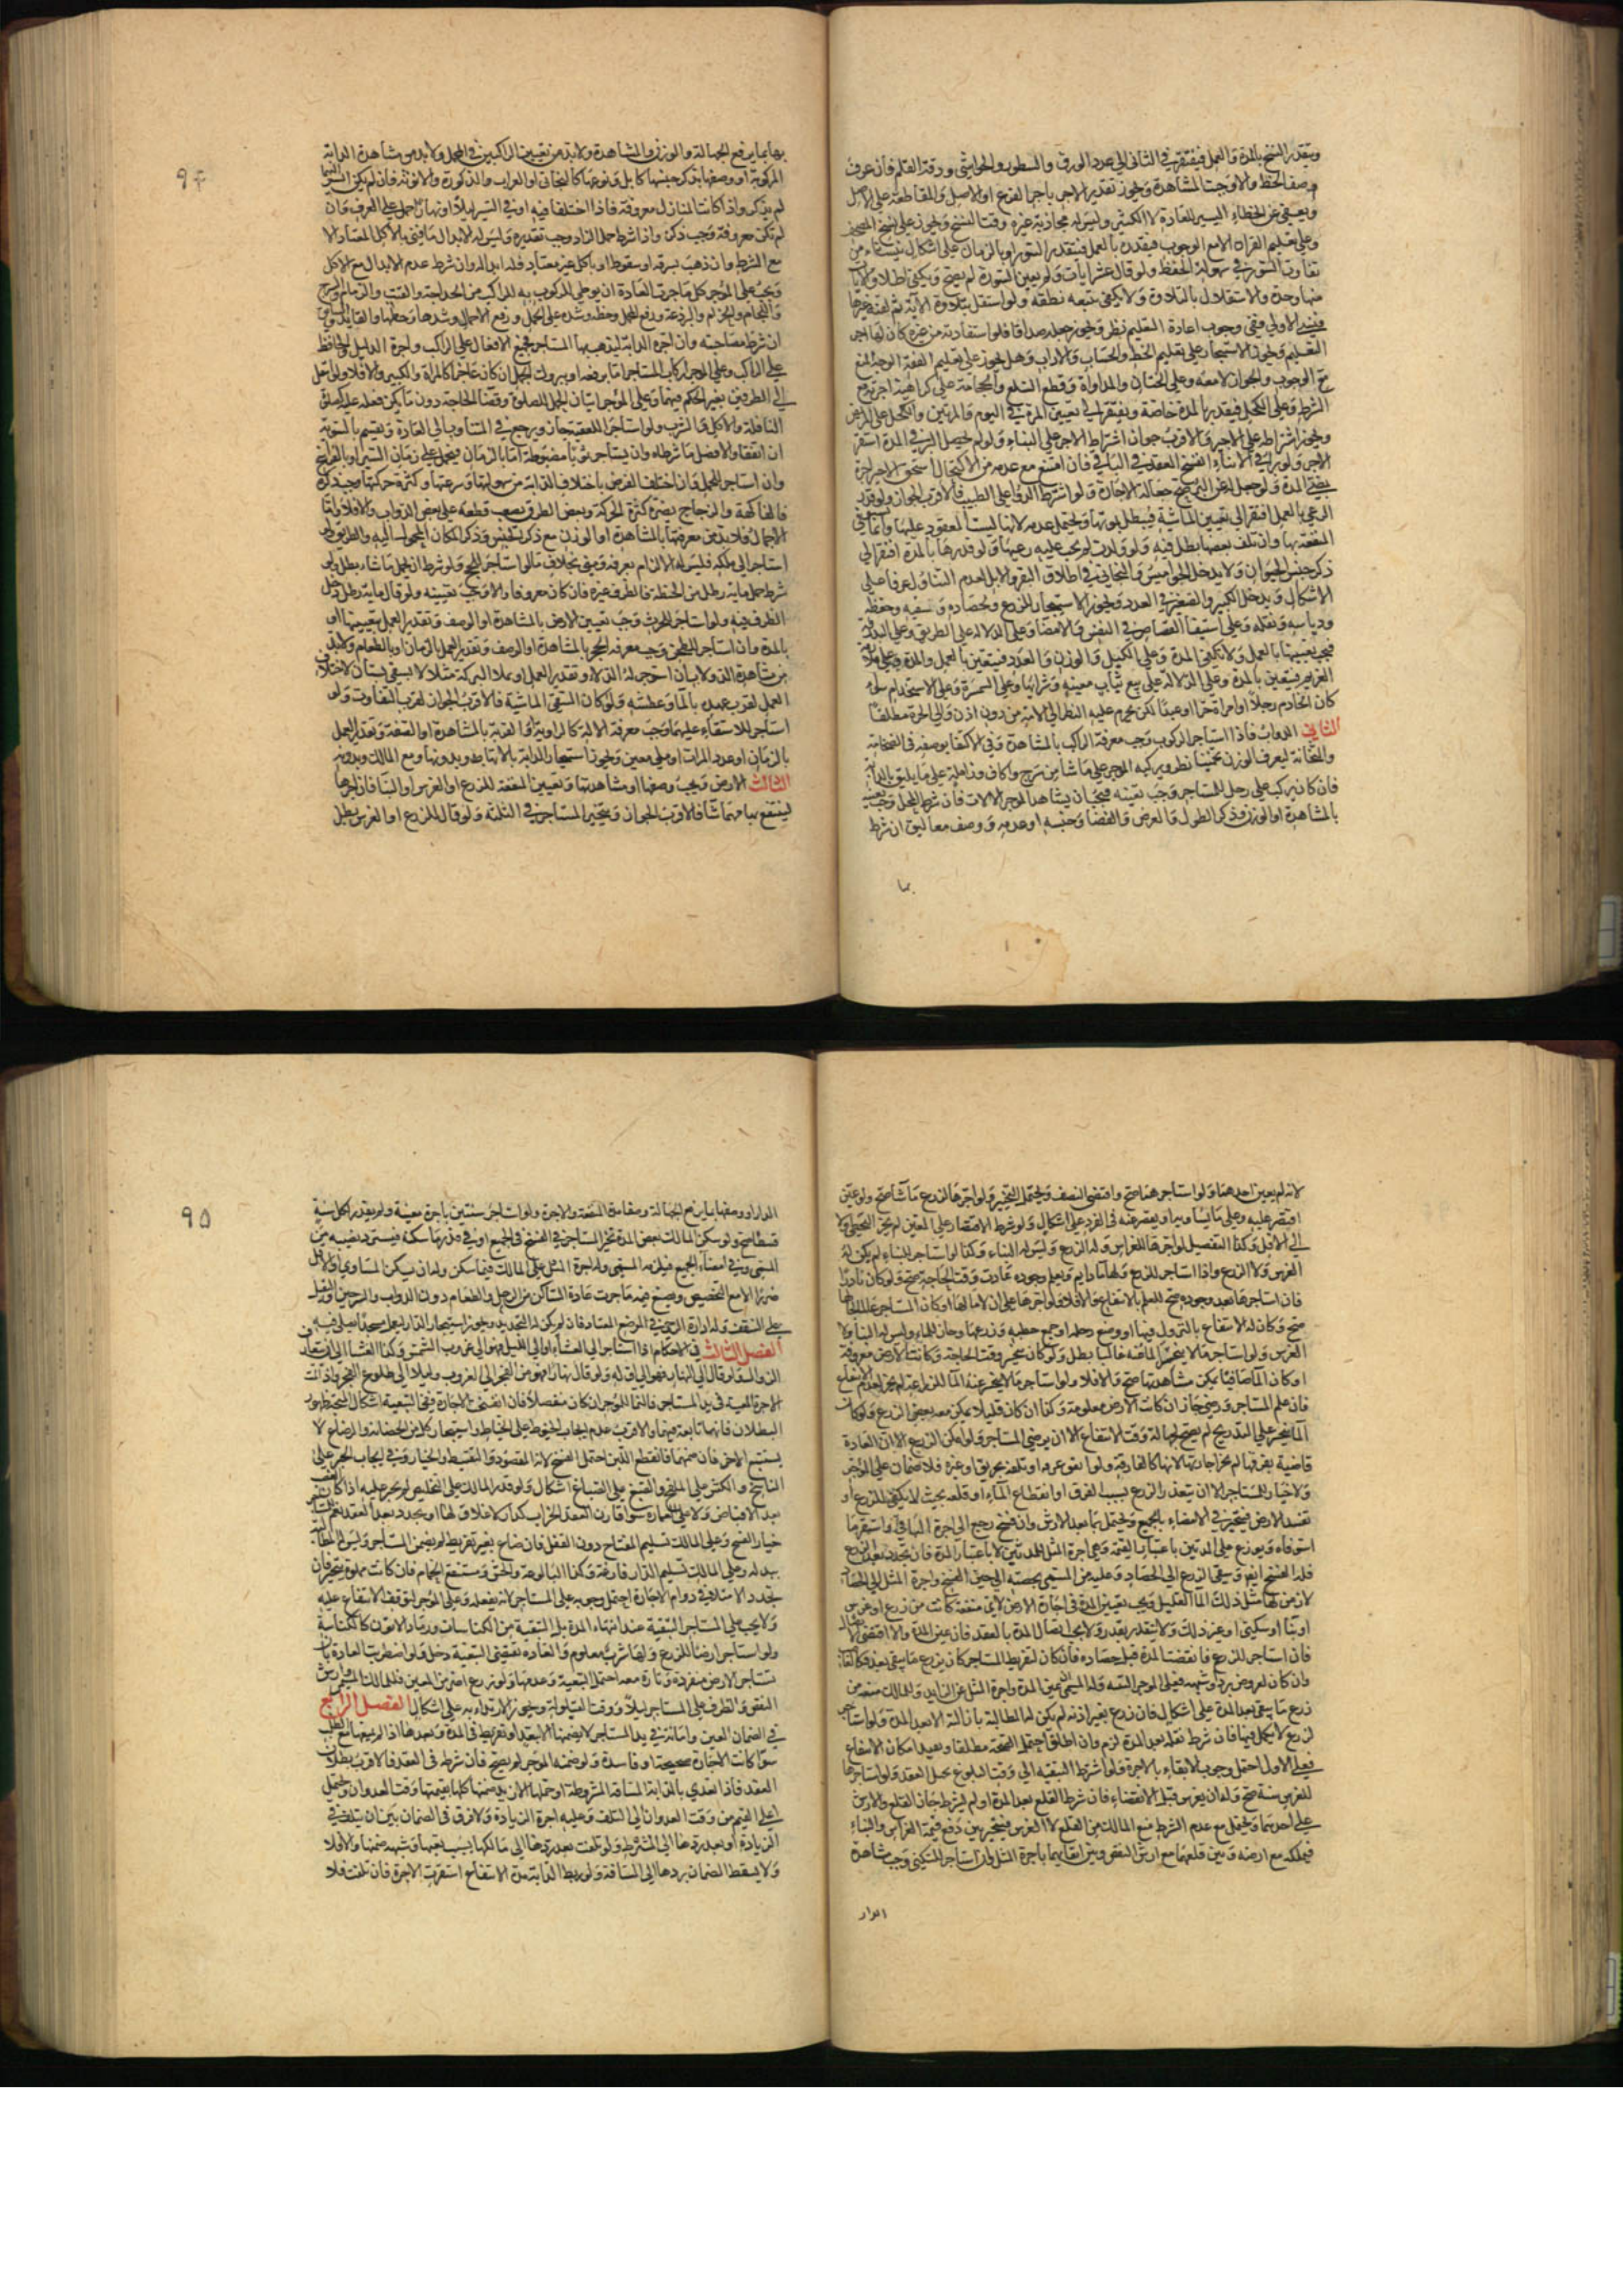 ويتقدر النسخ بالمدة والعمل فيفتقر في الثاني الى عدد الورق والسطور والحواشي ودقة القلم فان عرف
وصف الخط والا وجبت المشاهدة ويجوز تقدير الاجر باجزاء الفرع او الاصل والمقاطعة على الاصل
ويعفى عن الخطاء اليسير للعادة لا الكثير وليس له محادثة غيره وقت النسخ ويجوز على نسخ المصحف
وعلى تعليم القران الا مع الوجوب فيقدره بالعمل فيتقدر السور او بالزمان على اشكال ينشاء من
تفاوت السور في سهولة الحفظ ولو قال عشر ايات ولم يعين السورة لم يصح ويكفي اطلاق الايات
منها وحده الاستقلال بالتلاوة ولا يكفي تتبعه نطقه ولو استقل بتلاوة الاية ثم لقنه غيرها
فنسي الاولى ففي وجوب اعادة التعليم نظر ويجوز جعله صداقا فلو استفادته من غيره كان لها اجر
التعليم ويجوز الاستيجار على تعليم الخط والحساب والاداب وهل يجوز على تعليم الفقه الوجه المنع
مع الوجوب والجواز لا معه وعلى الختان والمداواة وقطع السلع والحجامة على كراهية اجرته مع
الشرط وعلى الكحل فيقدر بالمدة خاصة ويفتقر الى تعيين المرة في اليوم والمرتين والكحل على المريض
ويجوز اشتراطه على الاجير والاقرب جواز اشتراط الاجر على البناء ولو لم يحصل البرء في المدة استقر
الاجر ولو برا في الاثناء انفسخ العقد في الباقي فان امتنع مع عدمه من الاكتحال استحق الاجير اجرة
بمضي المدة ولو جعل له على البرء صح جعالة لا اجارة ولو اشترط الدواء على الطبيب فالاقرب الجواز ولو قدر
الرعي بالعمل افتقر الى تعيين الماشية فيبطل بموتها ويحتمل عدمه لانها ليست المعقود عليها وانما يستوفى
المنفعة بها وان تلف بعضها بطل فيه ولو ولدت لم يجب عليه رعيها ولو قدرها بالمدة افتقر الى
ذكر جنس الحيوان ولا يدخل الجواميس والبخاتي في اطلاق البقر والابل لعدم التناول عرفا على
الاشكال ويدخل الكبير والصغير في العدد ويجوز الاستيجار للزرع ولحصاده وسقيه وحفظه
ودياسه ونقله وعلى استيفاء القصاص في النفس والاعضاء وعلى الدلالة على الطريق وعلى البدرقة
فيجب تعيينها بالعمل ولا تكفي المدة وعلى الكيل والوزن والعدد فيتعين بالعمل والمدة وعلى ملازمة
الغريم فيتعين بالمدة وعلى الدلالة على بيع ثياب معينة وشرائها وعلى السمسرة وعلى الاستخدام سواء
كان الخادم رجلا او امراة حرا او عبدا لكن يحرم عليه النظر الى الامة من دون اذن والى الحرة مطلقا
الثاني الدواب فاذا استاجر للركوب وجب معرفة الراكب بالمشاهدة وفي الاكتفاء بوصفه في الضخامة
والنحافة ليعرف الوزن تخمينا نظر ويركبه الموجر على ما شاء من سرج واكاف وزاملة على ما يليق بالدابة
فان كان يركب على رحل للمستاجر وجب تعيينه فيجب ان يشاهد الموجر الالات فان شرط المحمل وجب تعيينه
بالمشاهدة او الوزن وذكر الطول والعرض والفضاء وجنسه او عدمه ووصف معاليق ان شرط
بها
٩٤
بها بما يرفع الجهالة والوزن والمشاهدة ولا بد من تعيين الراكبين في المحمل ولا بد من مشاهدة الدابة
المركوبة او وصفها بذكر جنسها كابل ونوعها كالبخاتي او العراب والذكورة والانوثة فان لم يكن السير اليهما
لم يذكر واذا كانت المنازل معروفة فاذا اختلفا فيه او في السير ليلا او نهارا حمل على العرف وان
لم تكن معروفة وجب ذكره واذا شرط حمل الزاد وجب تقديره وليس له الابدال ما فني بالاكل المعتاد الا
مع الشرط وان ذهب بسرقة او سقوط او باكل غير معتاد فله ابداله وان شرط عدم الابدال مع الاكل
ويجب على الموجر كل ما جرت العادة ان يوطى للركوب به للراكب من الحداجة والقتب والزمام والسرج
واللجام والحزام والبرذعة ورفع المحمل وحطه وشده على الجمل ورفع الاحمال وشدها وحطها والقائد والسائق
ان شرط مصاحبته وان اجره الدابة ليذهب بها المستاجر فجميع الافعال على الراكب واجرة الدليل والحافظ
على الراكب وعلى الموجر اركاب المستاجر اما برفعه او ببروك الجمل ان كان عاجزا كالمراة والكبير والا فلا ولو انتقل
الى الطرفين تغير الحكم فيهما وعلى الموجر ايقاف الجمل للصلوة وقضاء الحاجة دون ما يمكن فعله عليه كصلوة
النافلة والاكل والشرب ولو استاجر للعقبة جاز ويرجع في التناوب الى العادة ويقسم بالسوية
ان اتفقا والافضل ما شرطاه وان يستاجر نوبا مضبوطة اما بالزمان فيحمل على زمان السير او بالفراسخ
وان استاجر للحمل فان اختلف الغرض باختلاف الدابة من سهولتها وسرعتها وكثرة حركتها وجب ذكره
فالفاكهة والزجاج يضره كثرة الحركة وبعض الطرق يصعب قطعه على بعض الدواب والا فلا واما
الاحمال فلا بد من معرفتها بالمشاهدة او الوزن مع ذكر الجنس وذكر المكان المحمول اليه والطريق ولو
استاجر الى مكة فليس له الالزام بعرفة ومنى بخلاف ما لو استاجر للحج ولو شرط ان يحمل ما شاء بطل ولو
شرط حمل ماية رطل من الحنطة فالظرف غيره فان كان معروفا والا وجب تعيينه ولو قال ماية رطل دخل
الظرف فيه ولو استاجر للحرث وجب تعيين الارض بالمشاهدة او الوصف وتقدير العمل بتعيينها او
بالمدة وان استاجر للطحن وجب معرفة الحجر بالمشاهدة او الوصف وتقدير العمل بالزمان او بالطعام ولا بد
من مشاهدة الدولاب ان استوجر له الدلاء وتقدير العمل او ملاء البركة مثلا لا بسقي بستان لاختلاف
العمل لقرب عهده بالماء وعطشه ولو كان لسقي الماشية فالاقرب الجواز لقرب التفاوت ولو
استاجر للاستقاء عليها وجب معرفة الالة كالراوية او القربة بالمشاهدة او الصفة وتقدير العمل
بالزمان او عدد المرات او ملى معين ويجوز استيجار الدابة بالاتها وبدونها ومع المالك وبدونه
الثالث الارض ويجب وصفها او مشاهدتها وتعيين المنفعة للزرع او الغرس او البناء فان اجرها
لينتفع بها مهما شاء فالاقرب الجواز ويتخير المستاجر في الثلثة ولو قال للزرع او الغرس بطل
لانه لم يعين احدهما ولو استاجر لهما صح واقتضى النصف ويحتمل التخيير ولو اجرها للزرع ما شاء صح ولو عين
اقتصر عليه وعلى ما يساويه او يقصر عنه في الضرر على اشكال ولو شرط الاقتصار على المعين لم يجز التخطي ولا
الى الاقل وكذا التفصيل لو اجرها للغراس وله الزرع وليس له البناء وكذا لو استاجر للبناء لم يكن له
الغرس ولا الزرع واذا استاجر للزرع ولها ماء دايم او يعلم وجوده عادة وقت الحاجة صح ولو كان نادرا
فان استاجرها بعد وجوده صح للعلم بالانتفاع والا فلا فلو اجرها على ان لا ماء لها او كان المستاجر عالما بحالها
صح وكان له الانتفاع بالنزول فيها او وضع رحله او جمع حطبه وزرعها رجاء للماء وليس له البناء ولا
الغرس ولو استاجر ما لا ينحسر الماء عنه غالبا بطل ولو كان ينحسر وقت الحاجة وكانت الارض معروفة
او كان الماء صافيا يمكن مشاهدتها صح والا فلا ولو استاجر ما لا ينحسر عنه الماء للزراعة لم يجز لعدم الانتفاع
فان علم المستاجر ورضي جاز ان كانت الارض معلومة وكذا ان كان قليلا يمكن معه بعض الزرع ولو كان
الماء ينحسر على التدريج لم يصح لجهالة وقت الانتفاع الا ان يرضى المستاجر ولو امكن الزرع الا ان العادة
قاضية بغرقها لم يجز اجارتها لانها كالغارقة ولو اتفق غرقه او تلفه بحريق او غيره فلا ضمان على الموجر
ولا خيار للمستاجر الا ان يتعذر الزرع بسبب الغرق او انقطاع الماء او قلته بحيث لا يكفي للزرع او
تفسد الارض فيتخير في الامضاء بالجميع ويحتمل بما بعد الارش وان فسخ رجع الى اجرة الباقي واستقر ما
استوفاه ويوزع على المدتين باعتبار القيمة وهي اجرة المثل للمدتين لا باعتبار المدة فان تجدد بعد الزرع
فله الفسخ ايضا ويبقى الزرع الى الحصاد وعليه من المسمى بحصته الى حين الفسخ واجرة المثل الى الحصاد
لارض لها مثل ذلك الماء القليل ويجب تعيين المدة في اجارة الارض لاي منفعة كانت من زرع او غرس
او بناء او سكنى او غير ذلك ولا يتقدر بقدر ولا يجب اتصال المدة بالعقد فان عين المدة والا اقتضى الاتصال
فان استاجر للزرع فانقضت المدة قبل حصاده فان كان لتفريط المستاجر كان يزرع ما يبقى بعدها فكالغاصب
وان كان لعروض برد وشبهه فعلى الموجر التبقية وله المسمى عن المدة واجرة المثل عن الزايد وللمالك منعه من
زرع ما يبقى بعد المدة على اشكال فان زرع بغير اذنه لم يكن له المطالبة بازالته الا بعد المدة ولو استاجر
لزرع لا يكمل فيها فان شرط نقله بعد المدة لزم وان اطلق احتمل الصحة مطلقا وبقيد امكان الانتفاع
فعلى الاول احتمل وجوب الابقاء بالاجرة ولو شرط التبقية الى وقت البلوغ بجهل العقد ولو استاجرها
للغرس سنة صح وله ان يغرس قبل الانقضاء فان شرط القلع بعد المدة او لم يشرط جاز القلع ولا ارش
على احدهما ويحتمل مع عدم الشرط منع المالك من القلع لا الغرس فيتخير بين دفع قيمة الغراس والبناء
فيملكه مع ارضه وبين قلعهما مع ارش النقص وبين ابقائهما باجرة المثل ولو استاجر للسكنى وجب مشاهدة
الدار
٩٥
الدار او وصفها بما يرفع الجهالة وصفا مدة المنفعة والاجرة ولو استاجر سنتين باجرة معينة ولم يقدر لكل سنة
قسطا صح ولو سكن المالك بعض المدة تخير المستاجر في الفسخ في الجميع او في قدر ما سكنه فيسترد نصيبه من
المسمى وفي امضاء الجميع فيلزمه المسمى وله اجرة المثل على المالك فيما سكن وله ان يسكن المساوي او الاقل
ضررا الا مع التخصيص ويضع فيه ما جرت عادة الساكن من الرحل والطعام دون الدواب والسرجين والثقيل
على السقف وله ادارة الرحى في الموضع المعتاد فان لم يكن له التجديد ويجوز استيجار الدار ليعمل مسجدا يصلي فيه
الفصل الثالث في الاحكام اذا استاجر الى العشاء او الى الليل فهو الى غروب الشمس وكذا العشاء الا ان يتعارف
الزوال ولو قال الى النهار فهو الى اوله ولو قال نهارا فهو من الفجر الى الغروب وليلا الى طلوع الفجر واذا تمت
الاجرة المعينة في يد المستاجر فالنماء للموجر ان كان منفصلا فان انفسخت الاجارة ففي التبعية اشكال اقربه ذلك ولو ظهر
البطلان فانها تابعة فيهما والاقرب عدم ايجاب الخيوط على الخياط واستيجار كل من الحضانة والرضاع لا
يستتبع الاخر فان ضمنها فانقطع اللبن احتمل الفسخ لانه المقصود والتقسيط والخيار وفي ايجاب الحبر على
الناسخ والكش على الملقح والصبغ على الصباغ اشكال ولو قدر المالك على التخليص لم يجبر عليه اذا كان الغصب
بعد الاقباض ولا على العمارة سواء قارن العقد الخراب كدار لا غلاق لها او تجدد بعد العقد نعم للمستاجر
خيار الفسخ وعلى المالك تسليم المفتاح دون القفل فان ضاع بغير تفريط لم يضمن المستاجر وليس له المطالبة
ببدله وعلى المالك تسليم الدار فارغة وكذا البالوعة والحش ومستنقع الحمام فان كانت مملوة تخير فان
تجدد الامتلاء في دوام الاجارة احتمل وجوبه على المستاجر لانه بفعله وعلى الموجر لتوقف الانتفاع عليه
ولا يجب على المستاجر التنقية عند انتهاء المدة بل التنقية من الكناسات ورماد الاتون كالكناسة
ولو استاجر ارضا للزرع ولها شرب معلوم والعادة تقتضي التبعية دخل ولو اضطربت العادة بان
تستاجر الارض منفردة وتارة معه احتمل التبعية وعدمها ولو زرع اضر من المعين فللمالك المسمى وارش
النقص والطرف على المستاجر ليلا ووقت القيلولة ويجوز الارتداء به على اشكال الفصل الرابع
في الضمان العين وامانة في يد المستاجر لا يضمنها الا بتعد او تفريط في المدة وبعدها اذا لم يمنعها مع الطلب
سواء كانت الاجارة صحيحة او فاسدة ولو ضمنه الموجر لم يصح فان شرطه في العقد فالاقرب بطلان
العقد فاذا تعدى بالدابة المسافة المشروطة او حملها الازيد ضمنها كلها بقيمتها وقت العدوان ويحتمل
اعلى القيم من وقت العدوان الى التلف وعليه اجرة الزيادة ولا فرق في الضمان بين ان يتلف في
الزيادة او بعد ردها الى المشروط ولو تلفت بعد ردها الى مالكها بسبب تعبها وشبهه ضمنها والا فلا
ولا يسقط الضمان بردها الى المسافة ولو ربط الدابة مدة الانتفاع استقرت الاجرة فان تلفت فلا